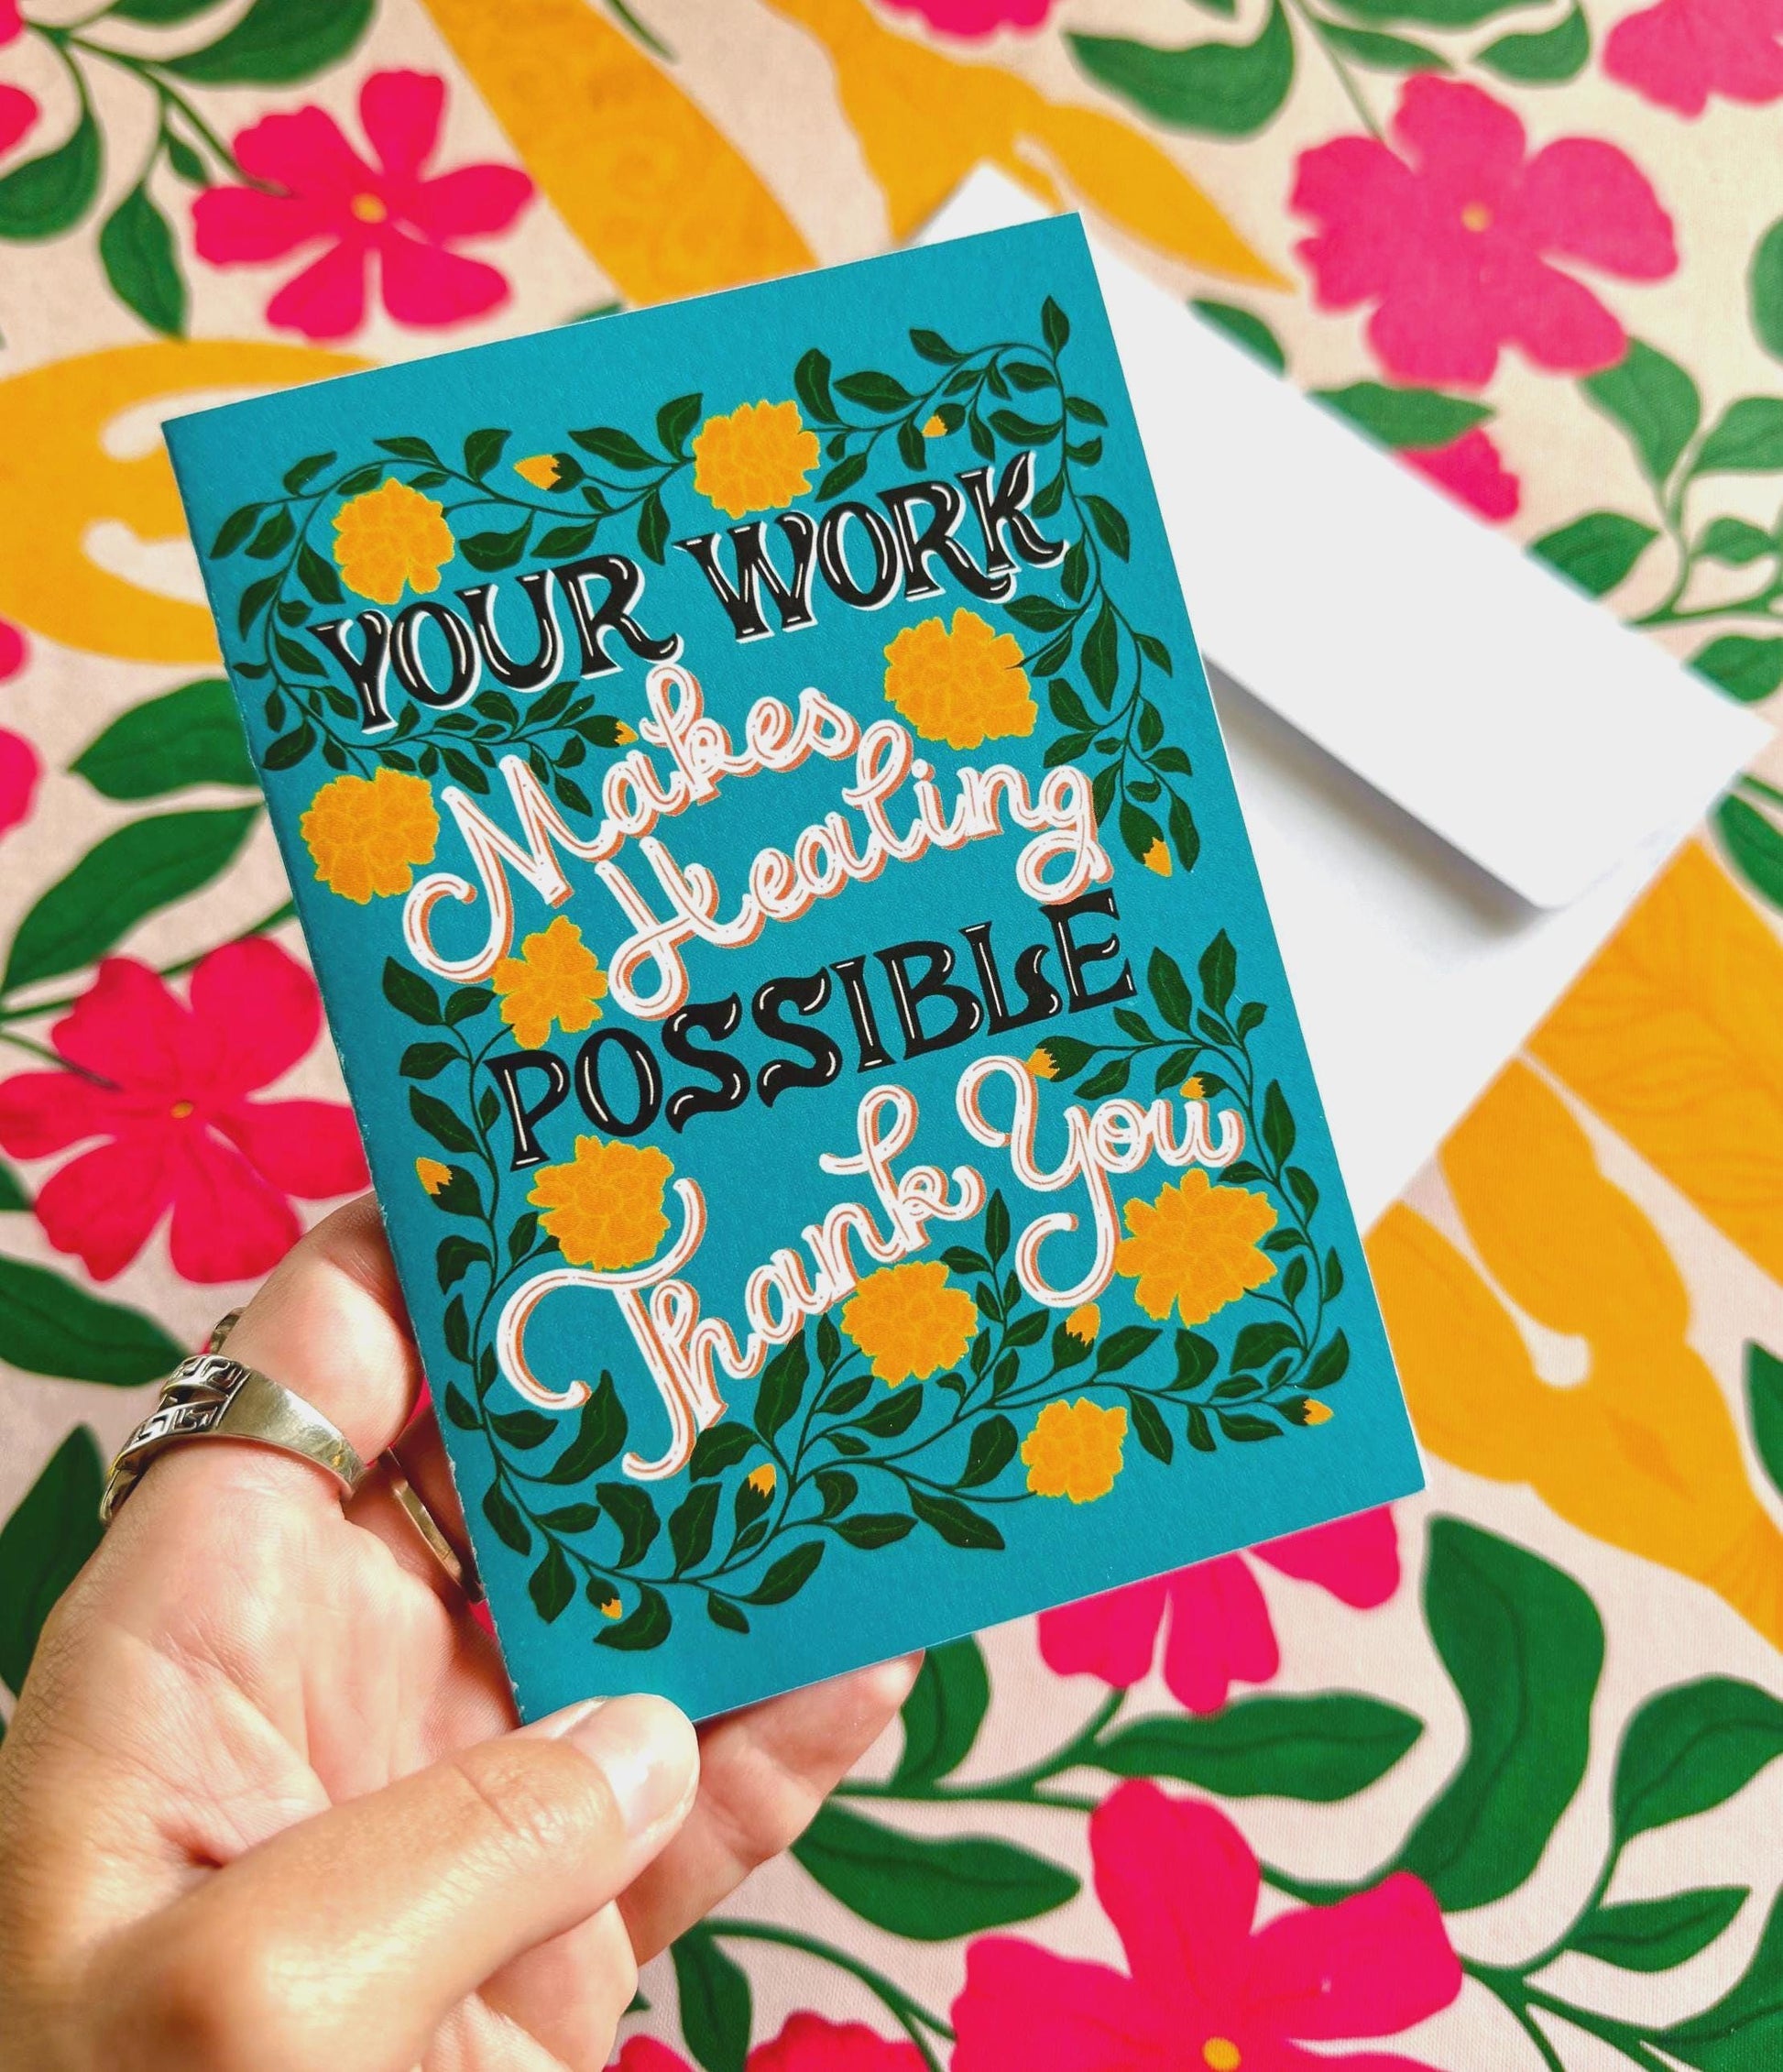 YOUR WORK
Makes
Healing
POSSIBLE
Thank You